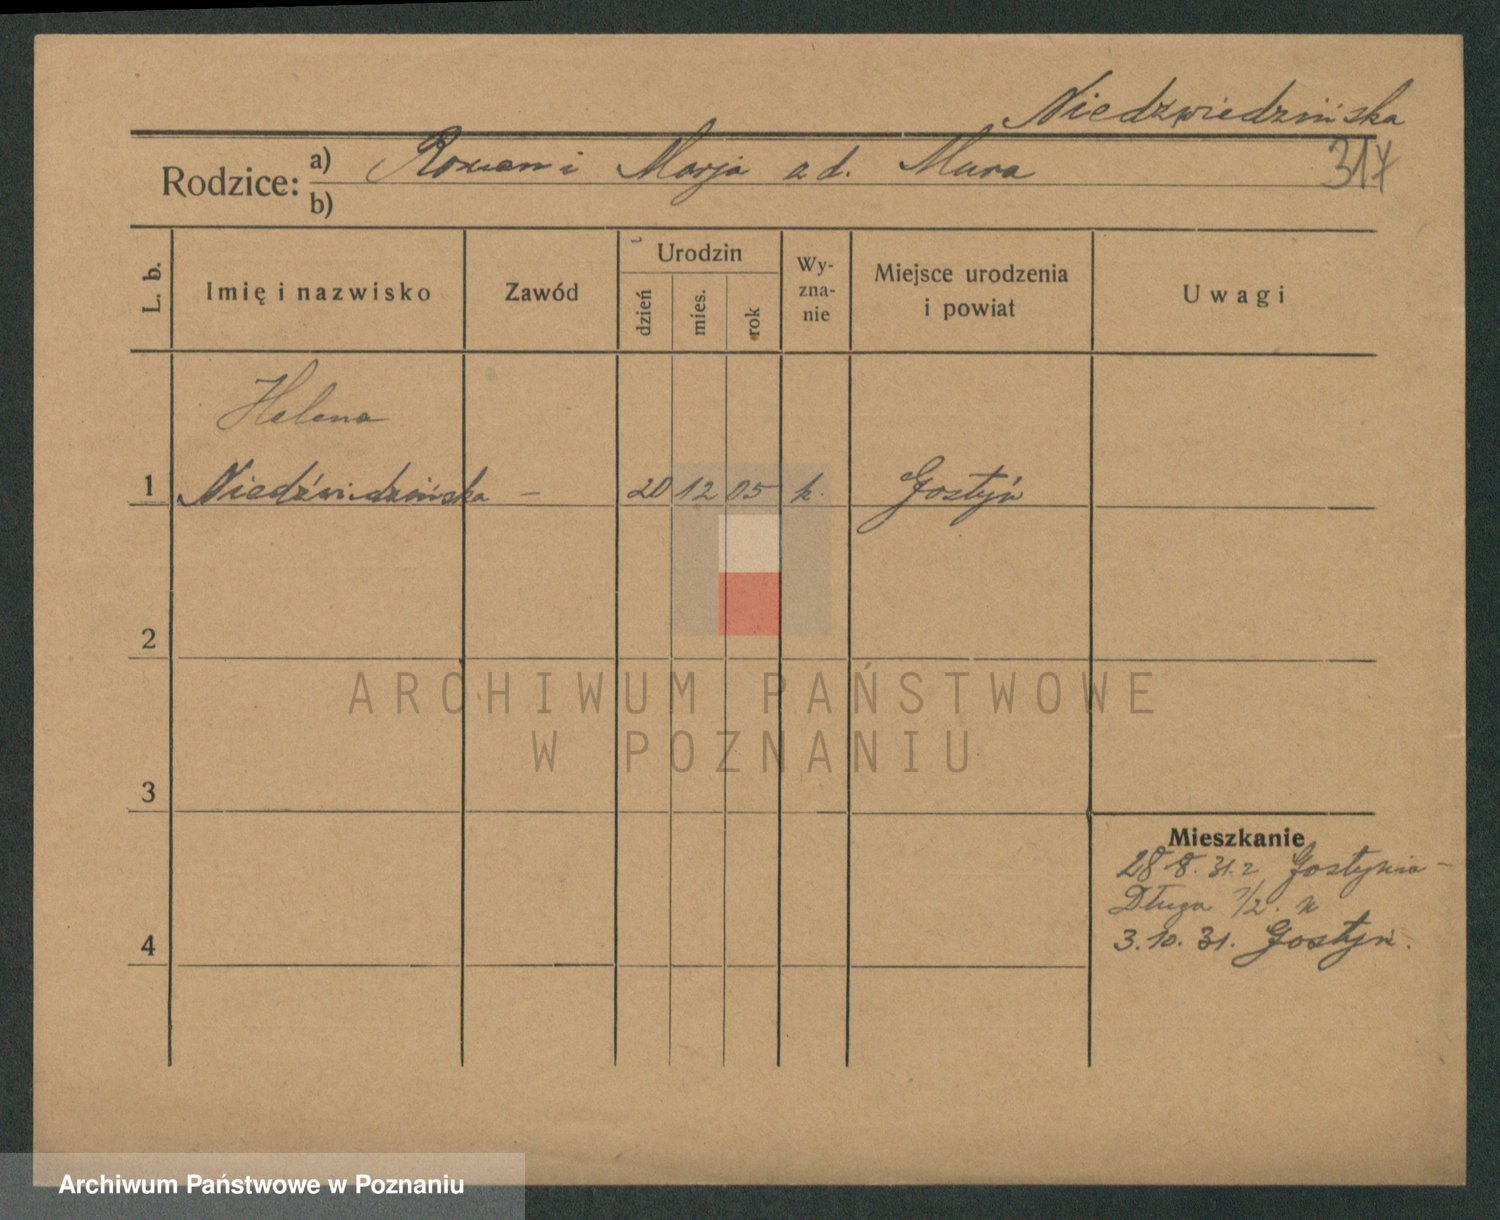 Niedźwiedzińska
Rodzice: a) Roman i Marja z d. Mura 317
b)
L. b. Imię i nazwisko Zawód Urodzin dzień mies. rok Wyznanie Miejsce urodzenia i powiat Uwagi
Helena
1 Niedźwiedzińska – 20 12 05 k. Gostyń
2
ARCHIWUM PAŃSTWOWE
W POZNANIU
3
Mieszkanie
28.8.31. z Gostynia –
Długa 7/2.
4 3.10.31. Gostyń.
Archiwum Państwowe w Poznaniu